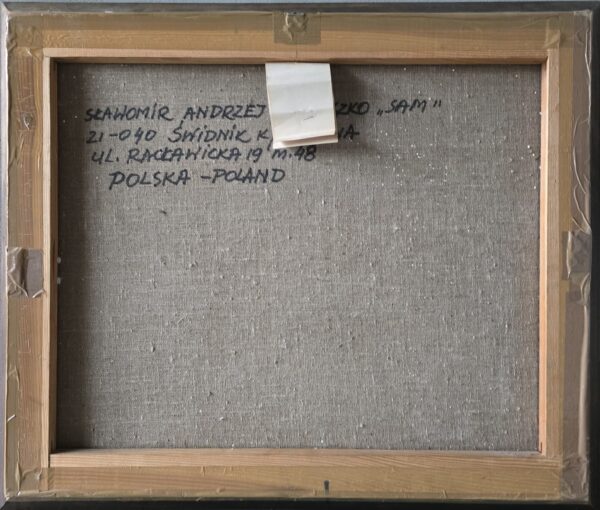 SŁAWOMIR ANDRZEJ „SAM"
21-040 ŚWIDNIK
UL. RACŁAWICKA 19 M. 48
POLSKA - POLAND